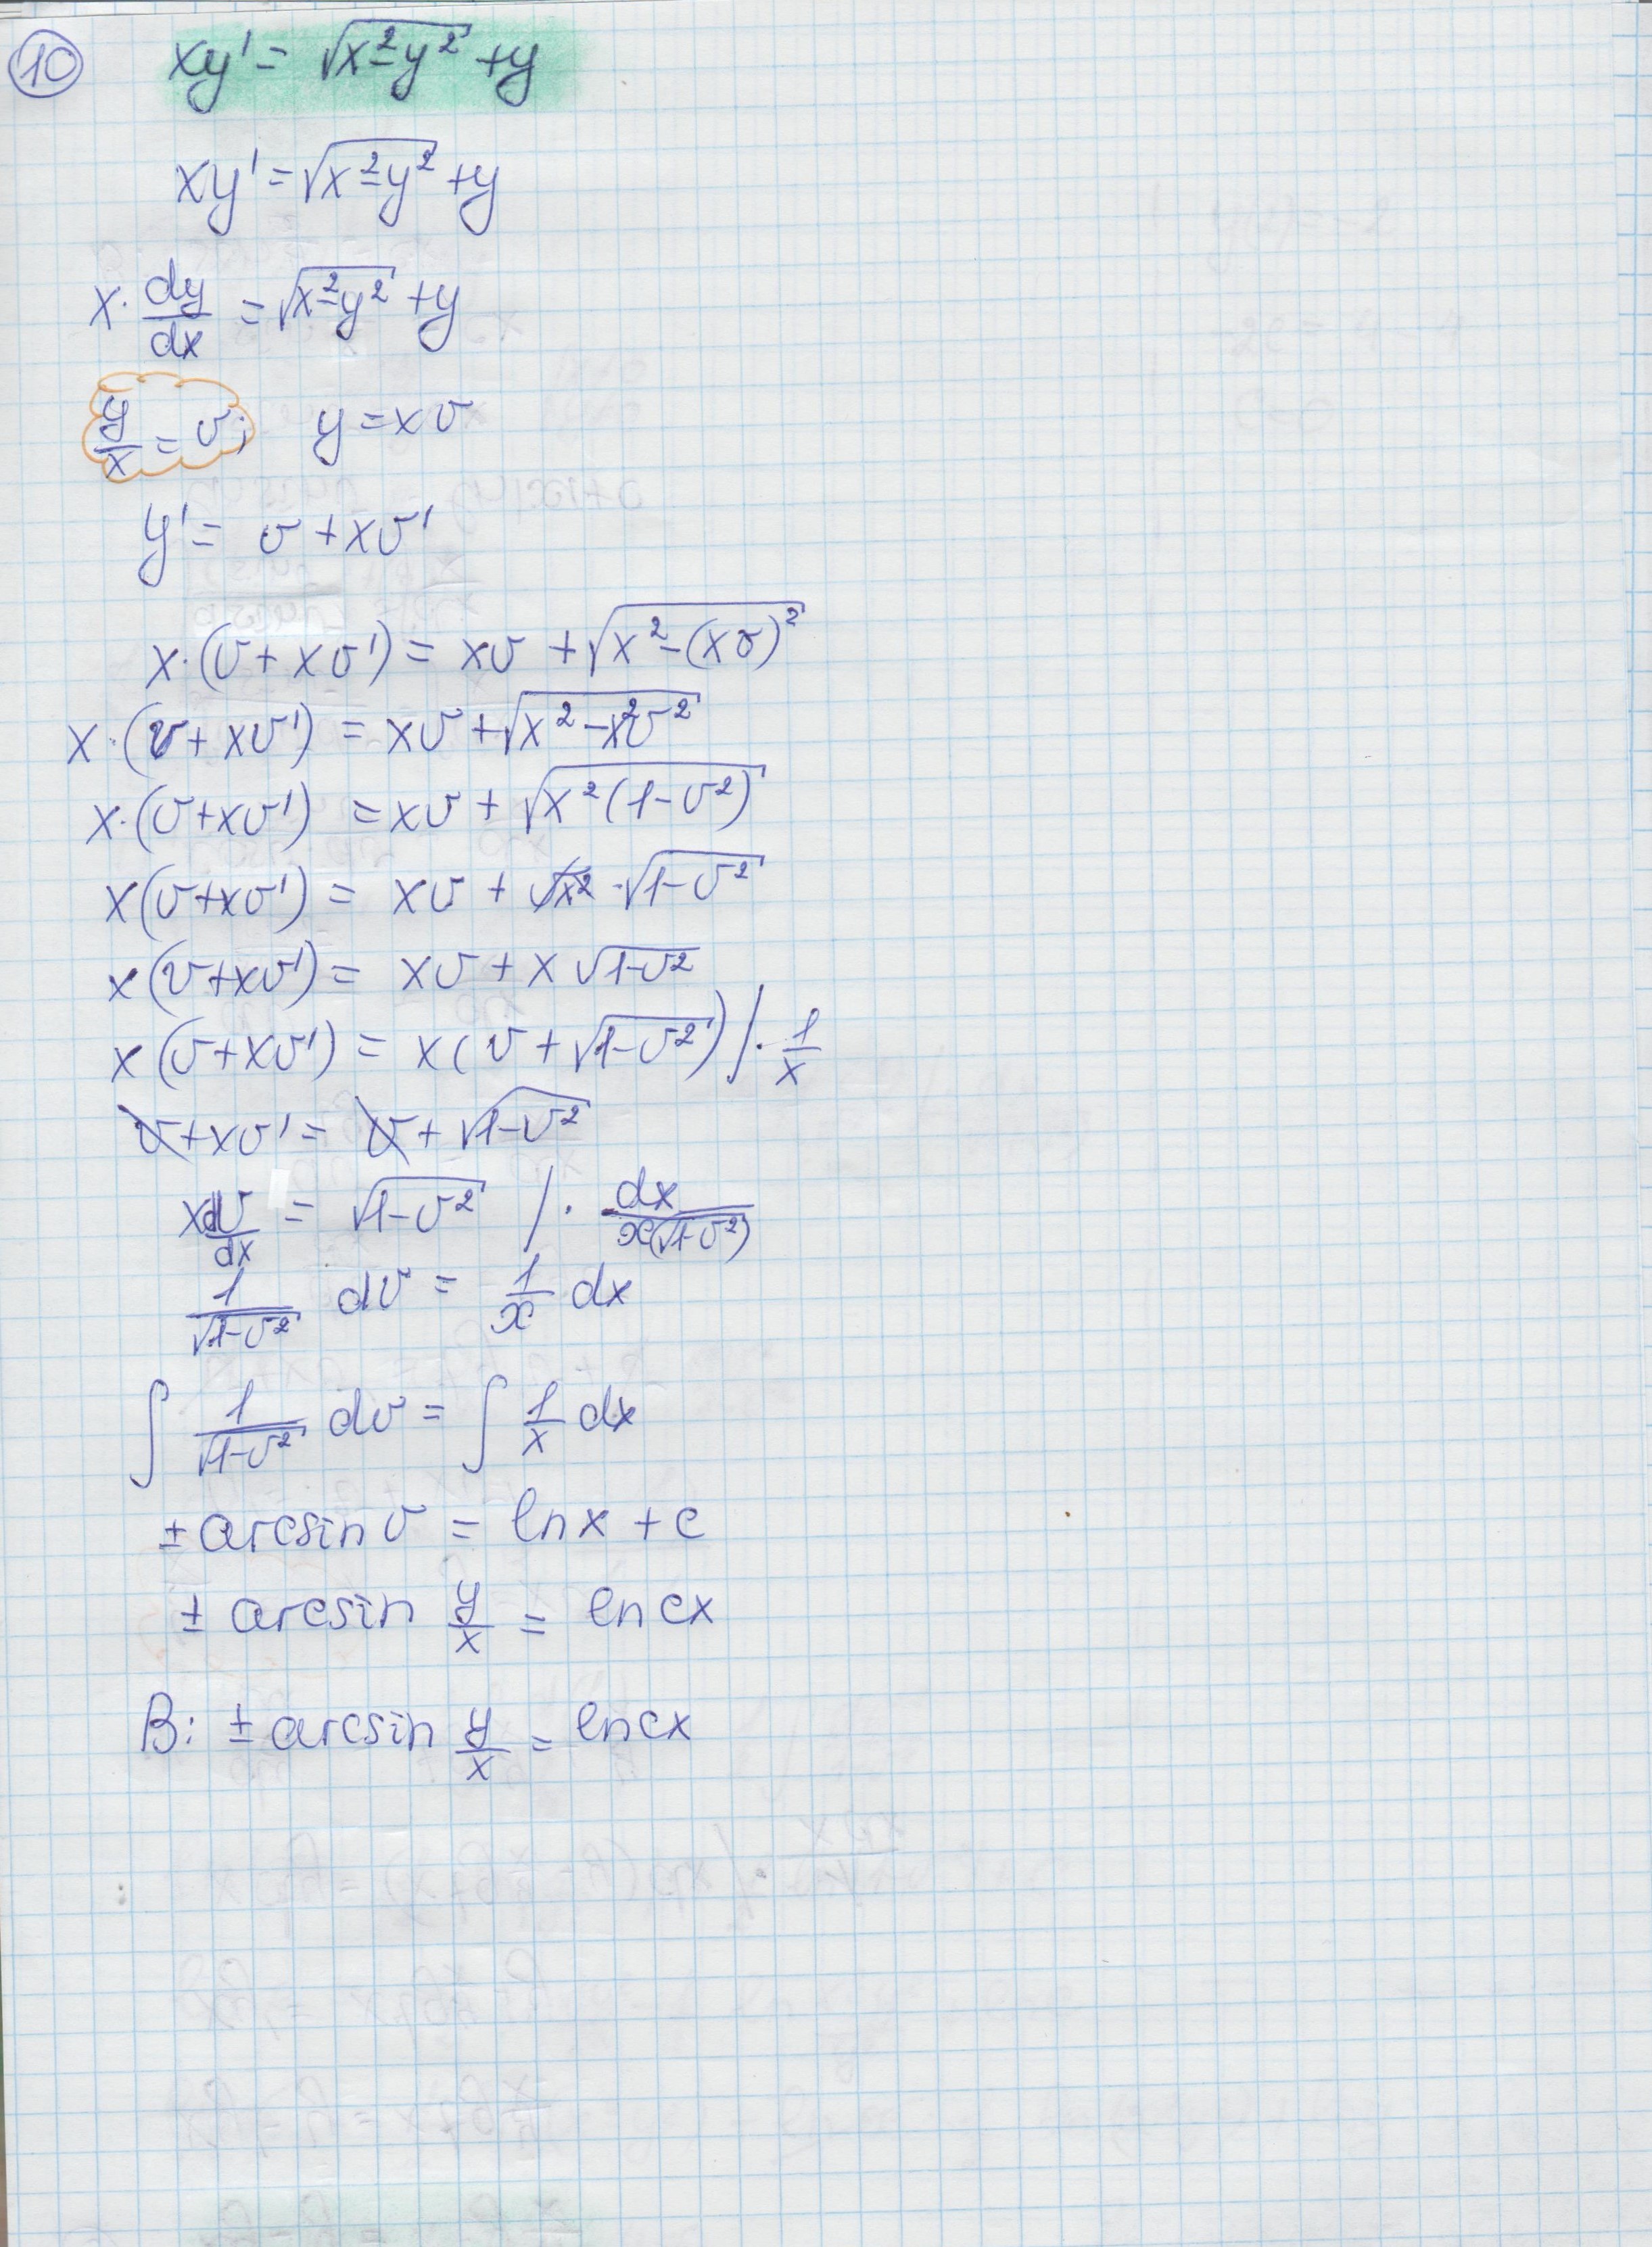 10 xy' = √(x²-y²) + y
xy' = √(x²-y²) + y
x · dy/dx = √(x²-y²) + y
y/x = v; y = xv
y' = v + xv'
x·(v + xv') = xv + √(x²-(xv)²)
x·(v + xv') = xv + √(x²-x²v²)
x·(v+xv') = xv + √(x²(1-v²))
x(v+xv') = xv + √x² · √(1-v²)
x(v+xv') = xv + x √(1-v²)
x(v+xv') = x(v + √(1-v²)) / · 1/x
v+xv' = v + √(1-v²)
x dv/dx = √(1-v²) / · dx/(x(√(1-v²)))
1/√(1-v²) dv = 1/x dx
∫ 1/√(1-v²) dv = ∫ 1/x dx
± arcsin v = ln x + c
± arcsin y/x = ln cx
В: ± arcsin y/x = ln cx